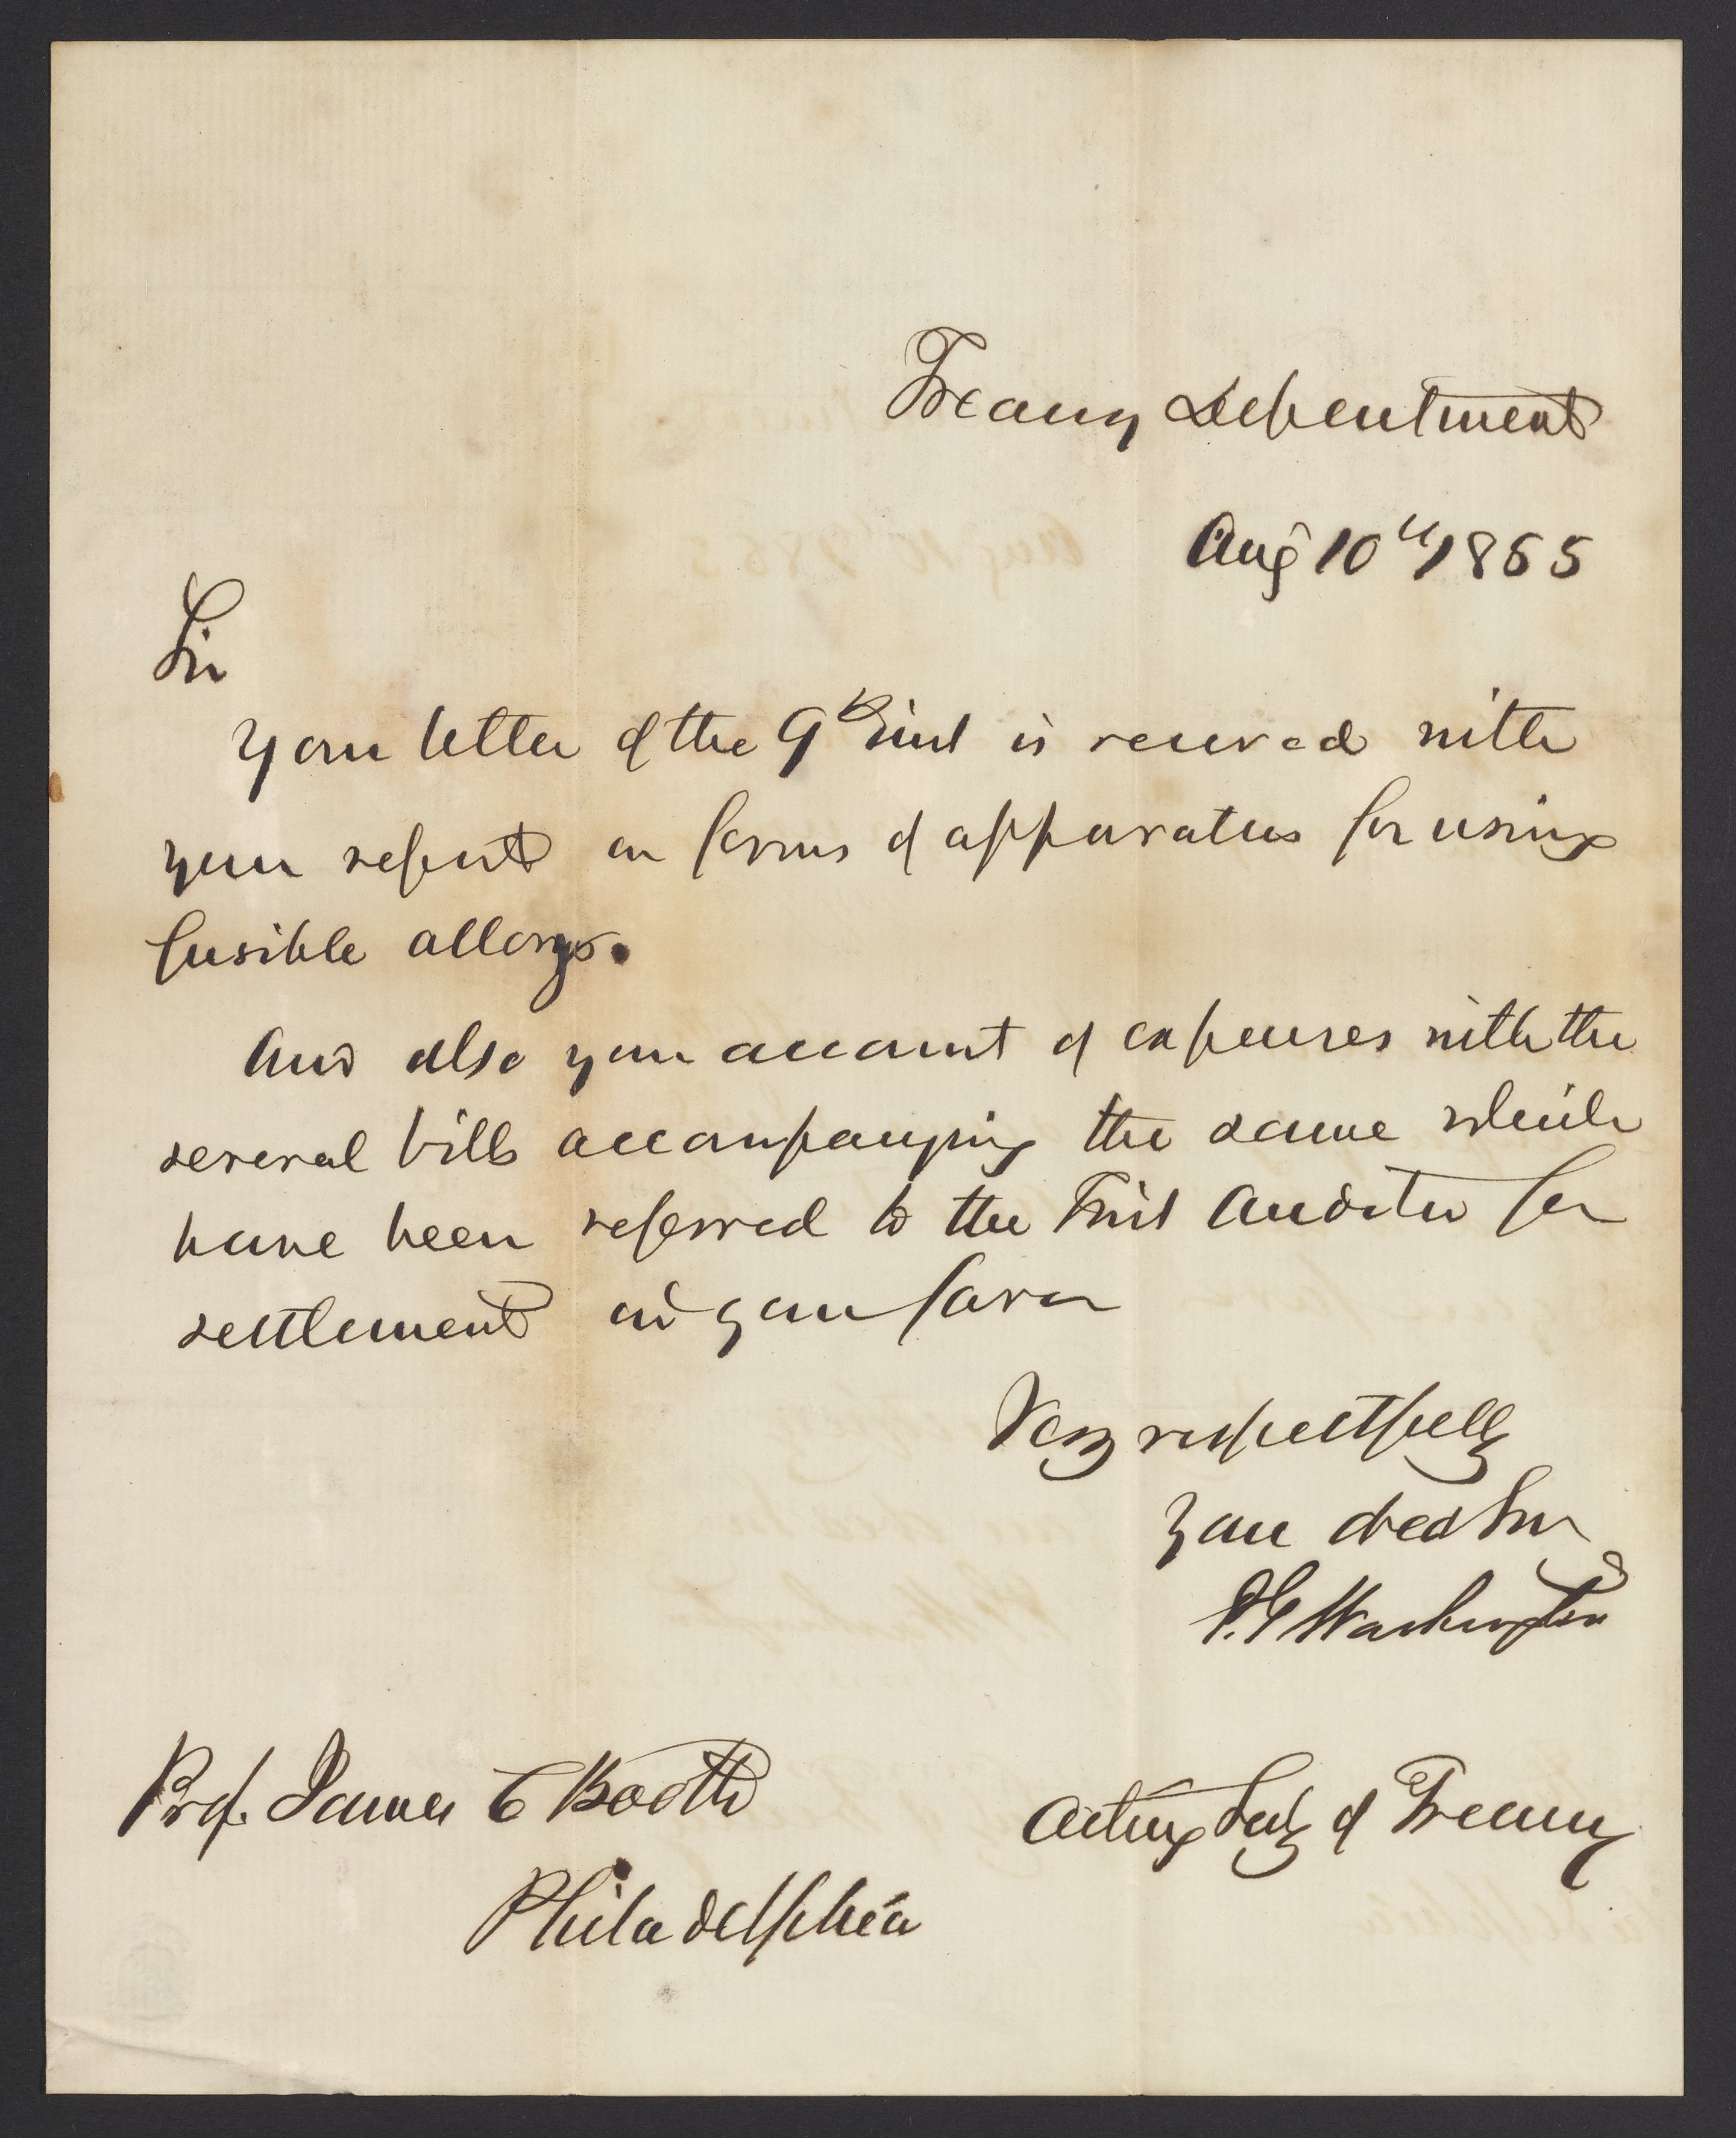 Treasury Department
Aug 10th 1855
Sir
Your letter of the 9th inst is received with
your report on forms of apparatus for using
fusible alloys.
And also your account of expenses with the
several bills accompanying the same which
have been referred to the First Auditor for
settlement in your favor
Very respectfully
Your obed Svr
P. G Washington
Prof. James C Booth
Acting Secy of Treasury
Philadelphia